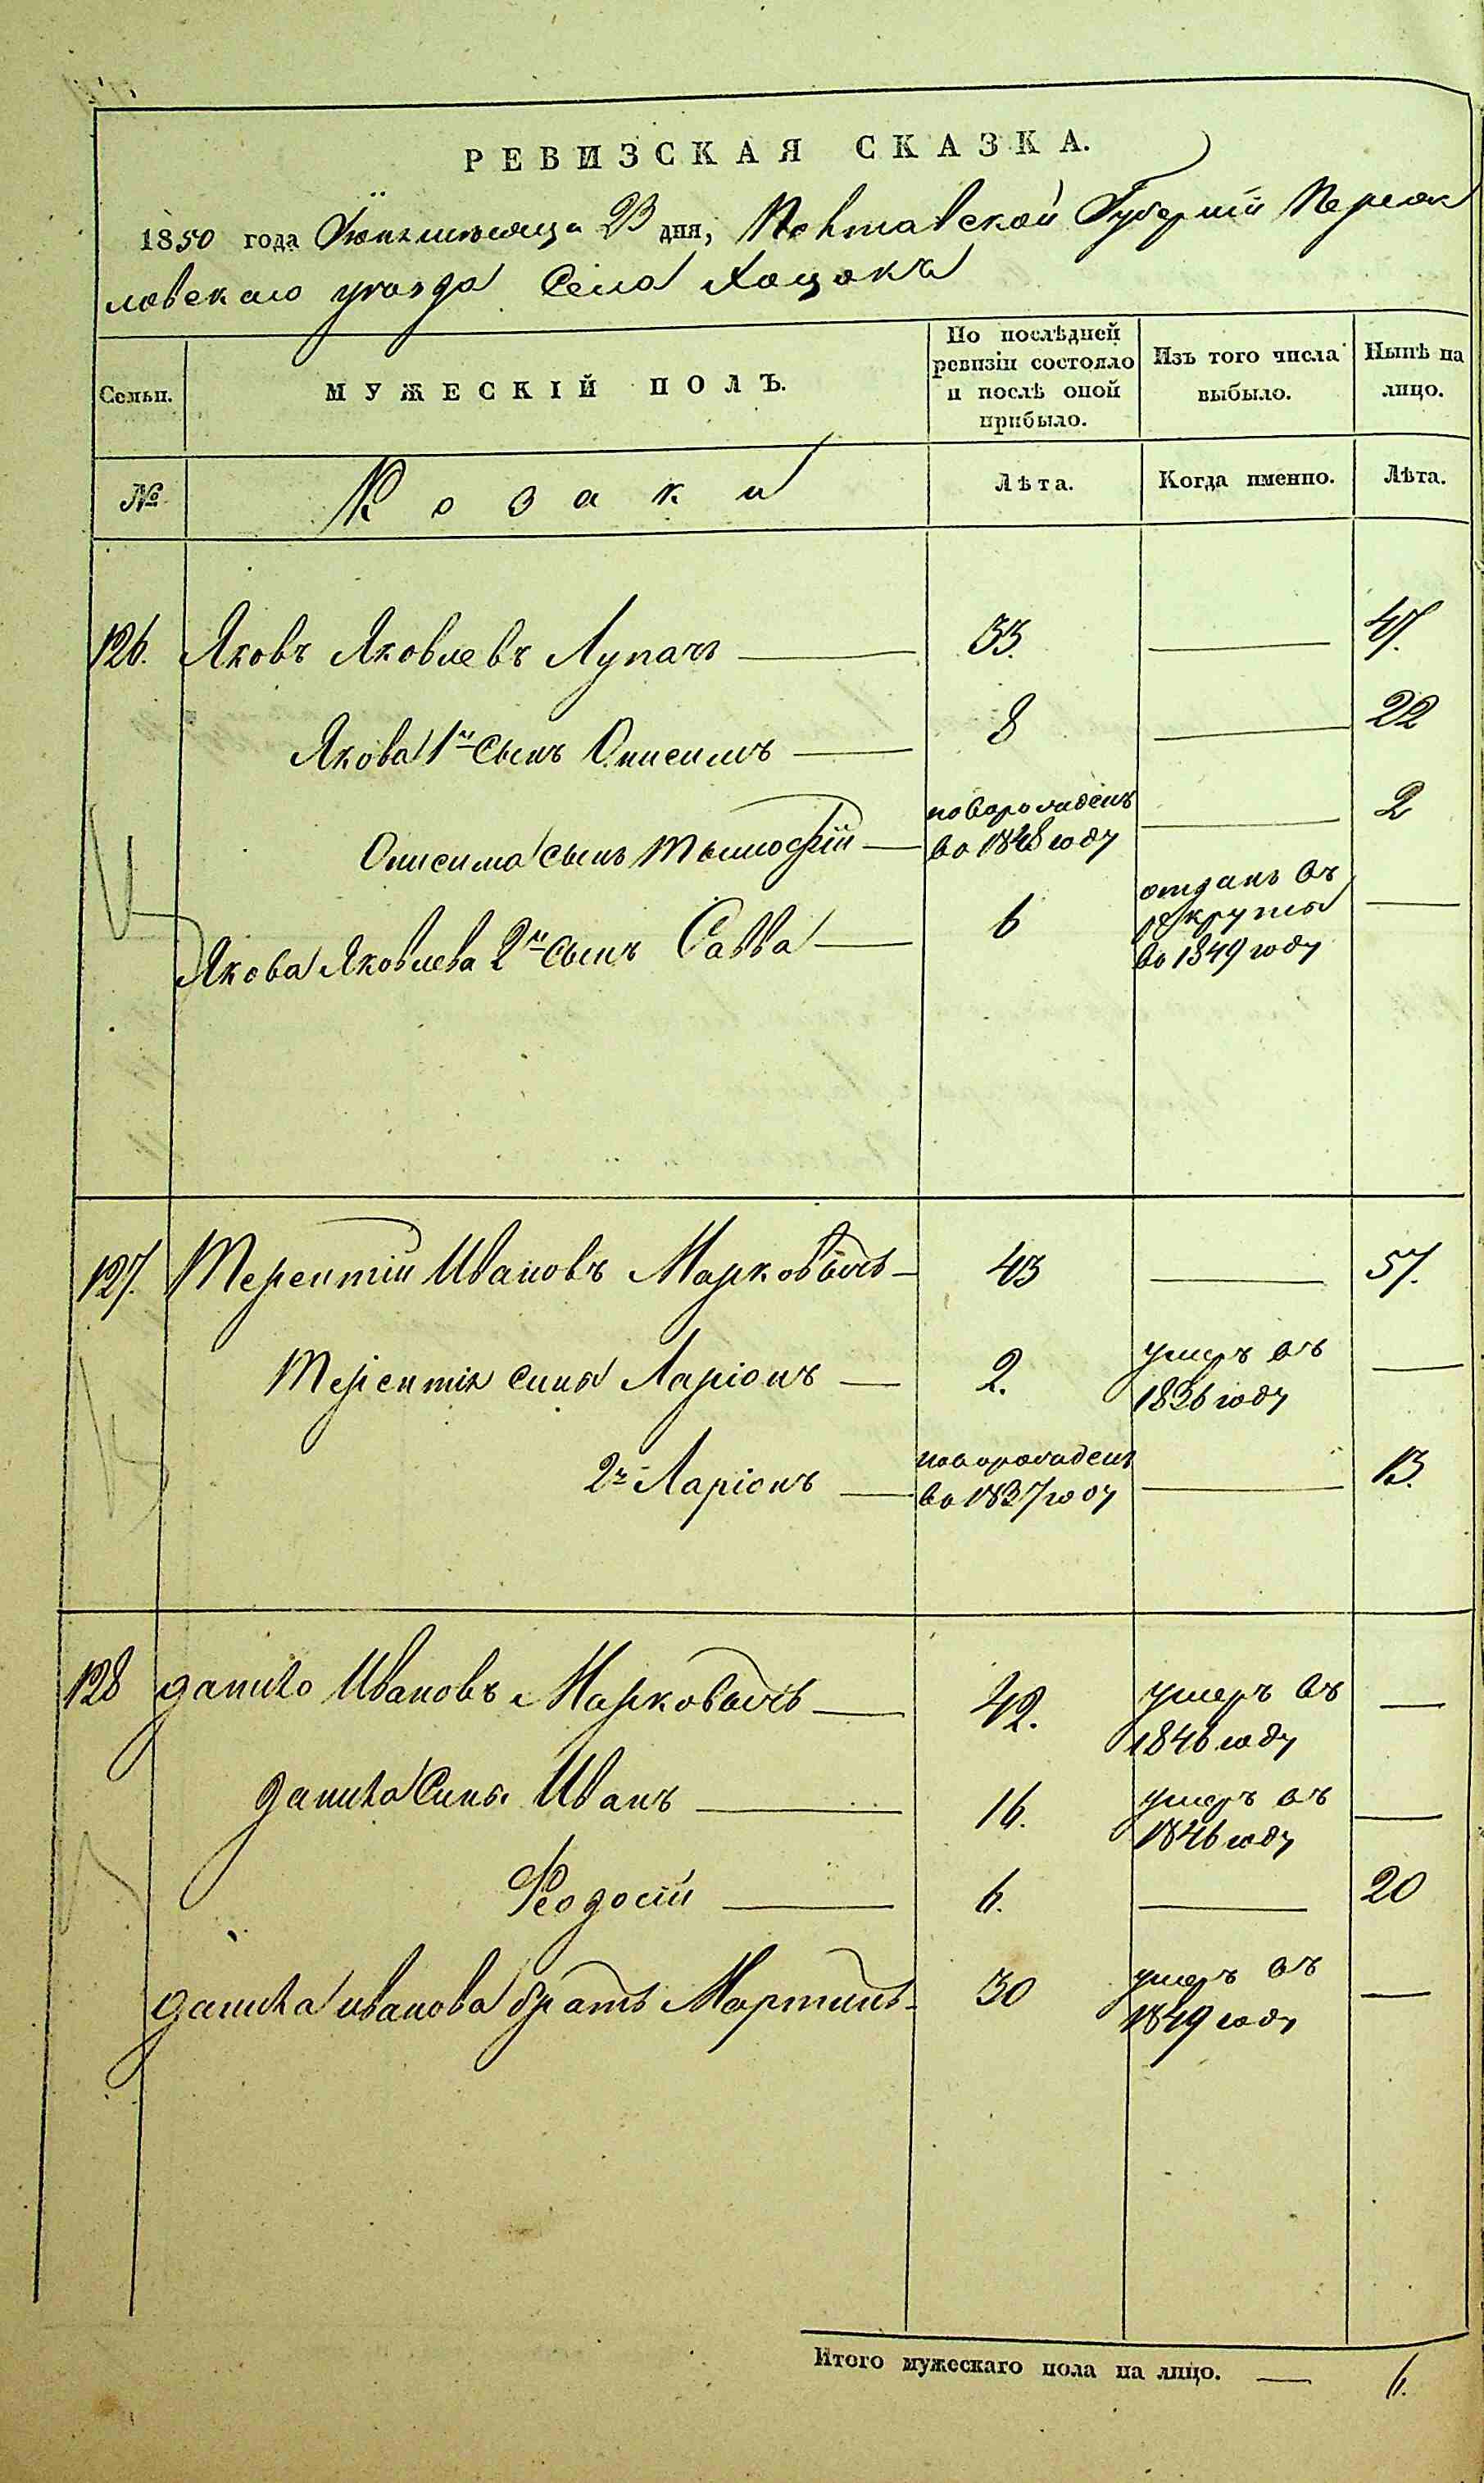 РЕВИЗСКАЯ СКАЗКА.
1850 года Іюня мѣсяца 23 дня, Полтавской Губерніи Переяс
ловскаго уѣзда Села Хоцокъ
Семьи.
МУЖЕСКІЙ ПОЛЪ.
По послѣдней ревизіи состояло и послѣ оной прибыло.
Изъ того числа выбыло.
Нынѣ на лицо.
№
Козаки
Лѣта.
Когда именно.
Лѣта.
126. Яковъ Яковлевъ Лупачъ — 33. — 47.
Якова 1й сынъ Онисимъ — 8 — 22
Онисима сынъ Тимофій — новорожденъ во 1848 году — 2
Якова Яковлева 2й сынъ Савва — 6 отданъ въ рекруты во 1849 году —
127. Терентій Ивановъ Марковичъ — 43 — 57.
Терентія сынъ Ларіонъ — 2. умеръ въ 1836 году —
2й Ларіонъ — новорожденъ во 1837 году — 13.
128 Данило Ивановъ Марковичъ — 42. умеръ въ 1846 году —
Данила сынъ Иванъ — 16. умеръ въ 1846 году —
Феодосій — 6. — 20
Данила Иванова братъ Мартинъ — 30 умеръ въ 1849 году —
Итого мужескаго пола на лицо. — 6.